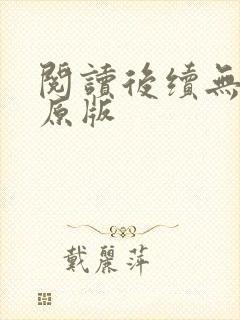 閱讀後續無
原版
戴麗萍